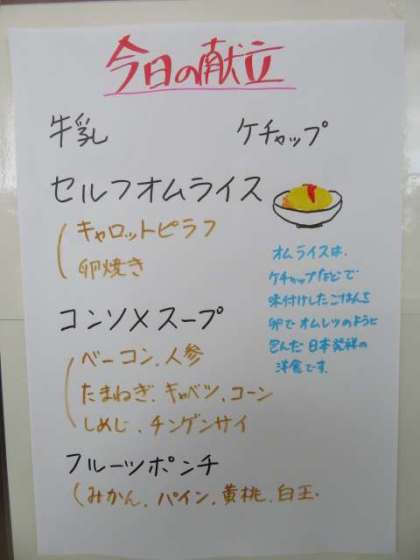 今日の献立
牛乳 ケチャップ
セルフオムライス
キャロットピラフ
卵焼き
オムライスは、
ケチャップなどで
味付けしたごはんを
卵でオムレツのように
包んだ日本発祥の
洋食です。
コンソメスープ
ベーコン、人参
たまねぎ、キャベツ、コーン
しめじ、チンゲンサイ
フルーツポンチ
みかん、パイン、黄桃、白玉